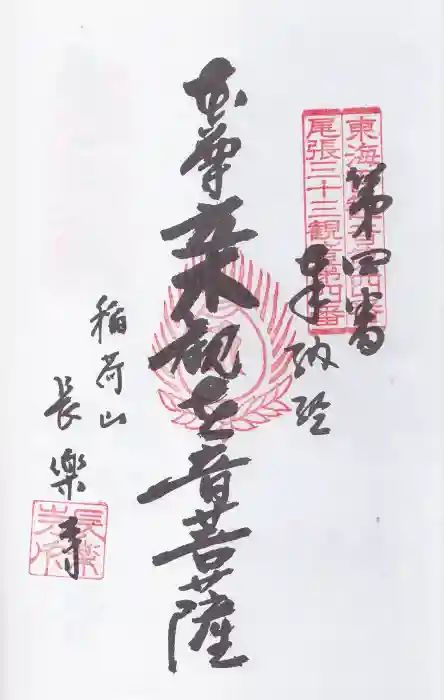 東海
尾張三十三観音第四番
第四番
奉納経
本尊 観世音菩薩
稲荷山
長樂寺